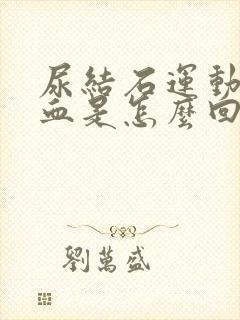 尿結石運動
血是怎麼回
劉萬盛